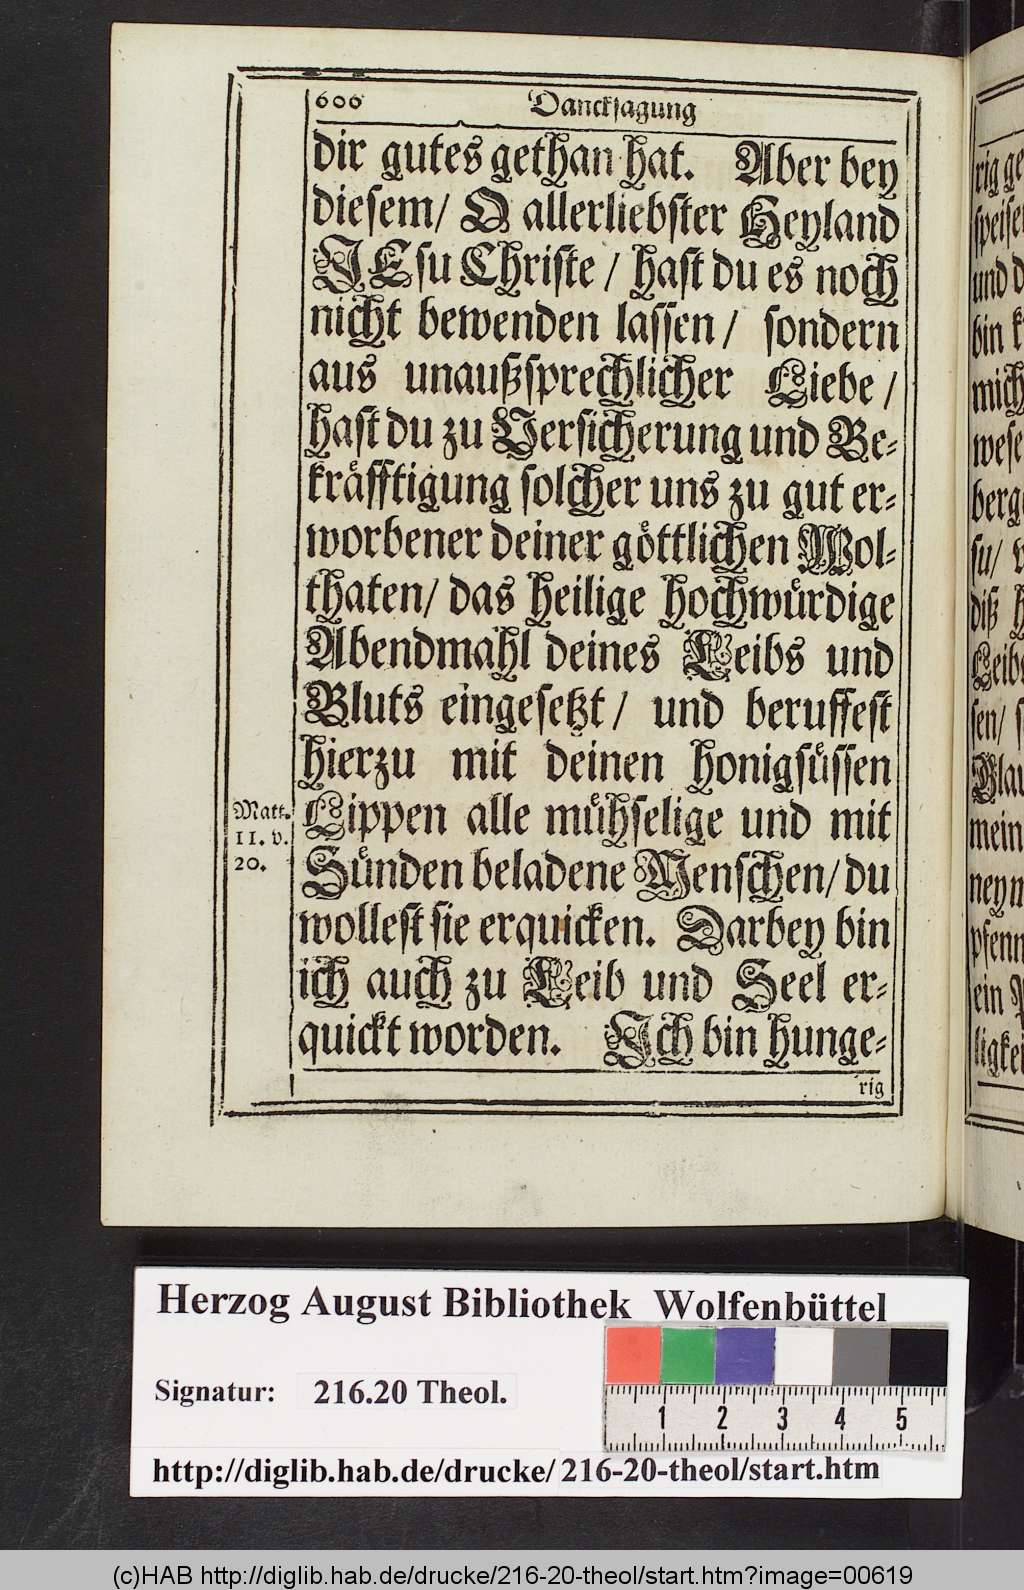 606
Dancksagung
dir gutes gethan hat. Aber bey
diesem/ O allerliebster Heyland
JEsu Christe / hast du es noch
nicht bewenden lassen/ sondern
aus unaußsprechlicher Liebe /
hast du zu Versicherung und Be-
kräfftigung solcher uns zu gut er-
worbener deiner göttlichen Wol-
thaten/ das heilige hochwürdige
Abendmahl deines Leibs und
Bluts eingesetzt/ und beruffest
hierzu mit deinen honigsüssen
Matt.
11. v.
20.
Lippen alle mühselige und mit
Sünden beladene Menschen/ du
wollest sie erquicken. Darbey bin
ich auch zu Leib und Seel er-
quickt worden. Ich bin hunge-
rig
rig ge
speise
und d
bin k
mich
wese
berg
su/ v
diß h
Leib
sen/ s
Glau
mein
neym
pfenn
ein
ligkei
Herzog August Bibliothek Wolfenbüttel
Signatur: 216.20 Theol.
1 2 3 4 5
http://diglib.hab.de/drucke/216-20-theol/start.htm
(c)HAB http://diglib.hab.de/drucke/216-20-theol/start.htm?image=00619